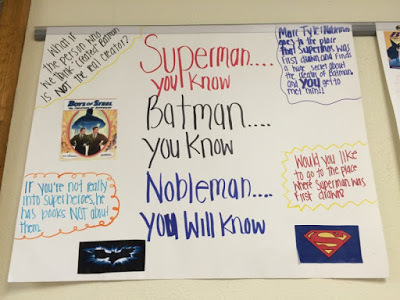 What if
the person who
we think created Batman
is NOT the real creator?
Superman....
you know
Batman....
you know
Nobleman....
you will know
Marc Tyler Nobleman
goes to the place
that Superman was
first drawn and finds
a huge secret about
the death of Batman
and YOU get to
met him!!
BOYS OF STEEL
IF you're not really
into superheroes, he
has books NOT about
them.
Would you like
to go to the place
where Superman was
first drawn
S